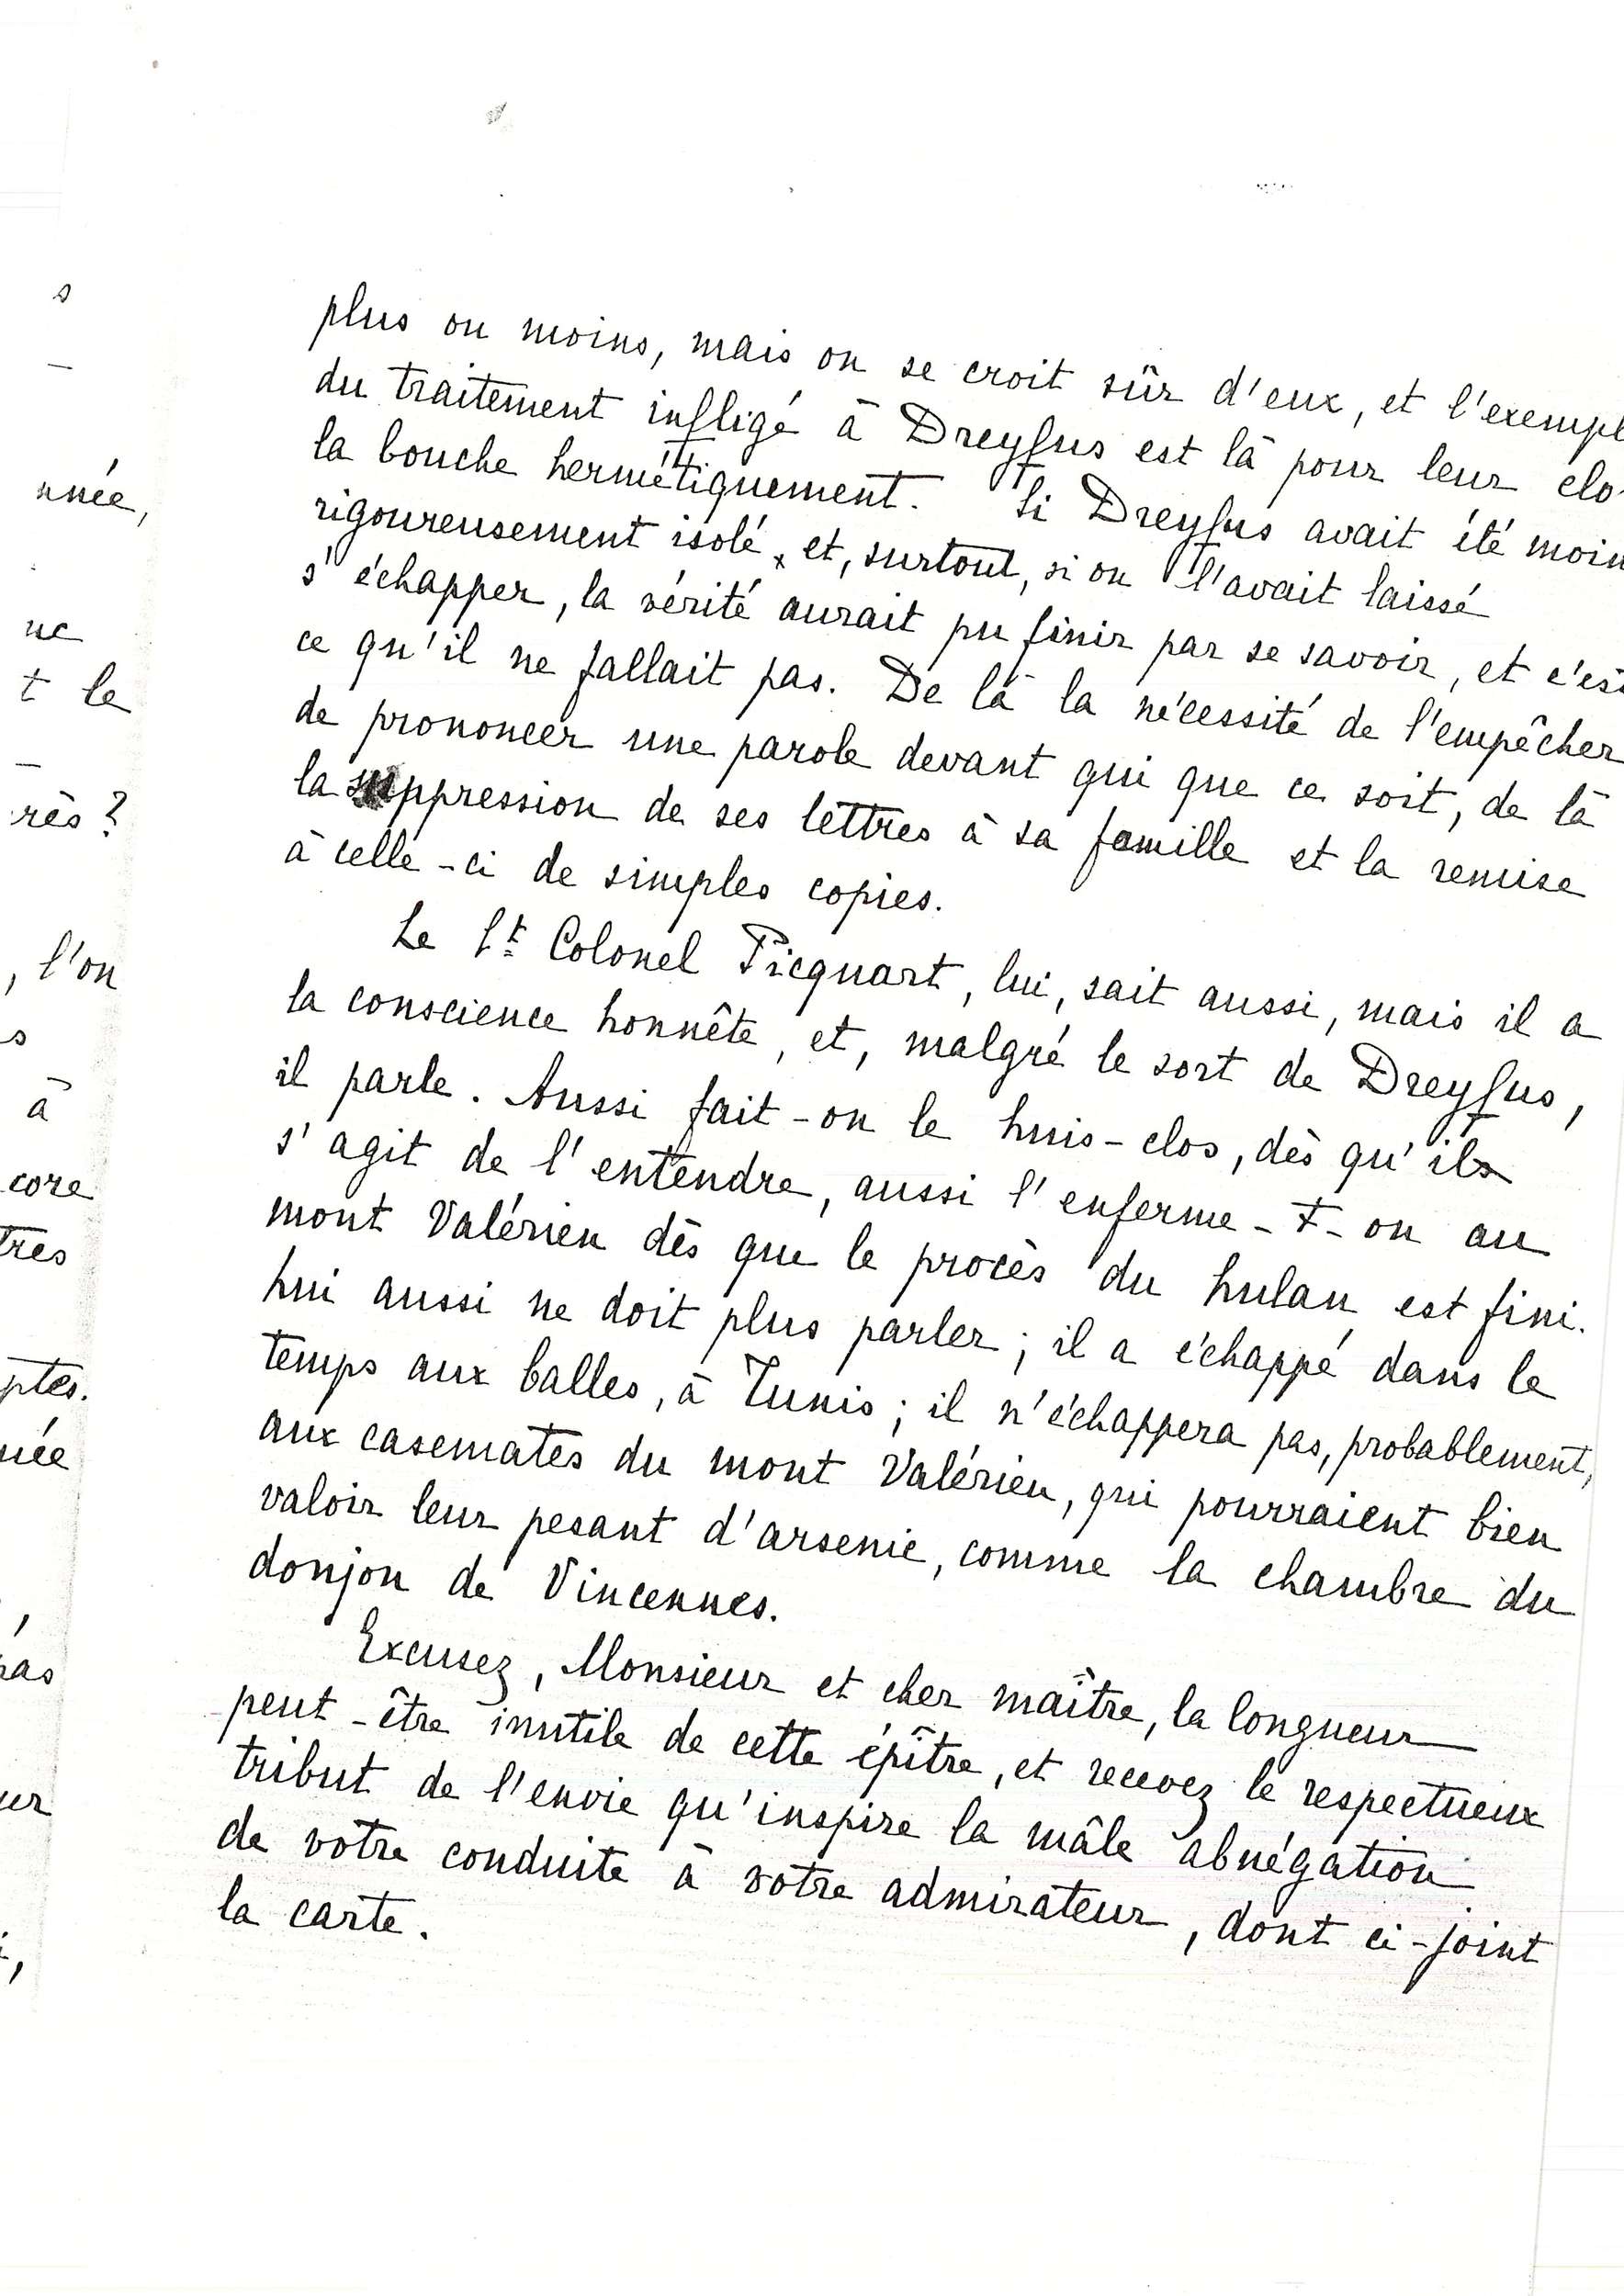 plus ou moins, mais on se croit sûr d'eux, et l'exempl
du traitement infligé à Dreyfus est là pour leur clo
la bouche hermétiquement. Si Dreyfus avait été moin
rigoureusement isolé, et, surtout, si on l'avait laissé
s'échapper, la vérité aurait pu finir par se savoir, et c'est
ce qu'il ne fallait pas. De là la nécessité de l'empêcher
de prononcer une parole devant qui que ce soit, de là
la suppression de ses lettres à sa famille et la remise
à celle-ci de simples copies.
Le Lt Colonel Picquart, lui, sait aussi, mais il a
la conscience honnête, et, malgré le sort de Dreyfus,
il parle. Aussi fait-on le huis-clos, dès qu'il
s'agit de l'entendre, aussi l'enferme-t-on au
mont Valérien dès que le procès du hulan est fini.
Lui aussi ne doit plus parler; il a échappé dans le
temps aux balles, à Tunis; il n'échappera pas, probablement,
aux casemates du mont Valérien, qui pourraient bien
valoir leur pesant d'arsenic, comme la chambre du
donjon de Vincennes.
Excusez, Monsieur et cher maître, la longueur
peut-être inutile de cette épître, et recevez le respectueux
tribut de l'envie qu'inspire la mâle abnégation
de votre conduite à votre admirateur, dont ci-joint
la carte.
s
nnée,
ne
t le
rès?
, l'on
s
à
core
tres
ptes.
née
pas
ur